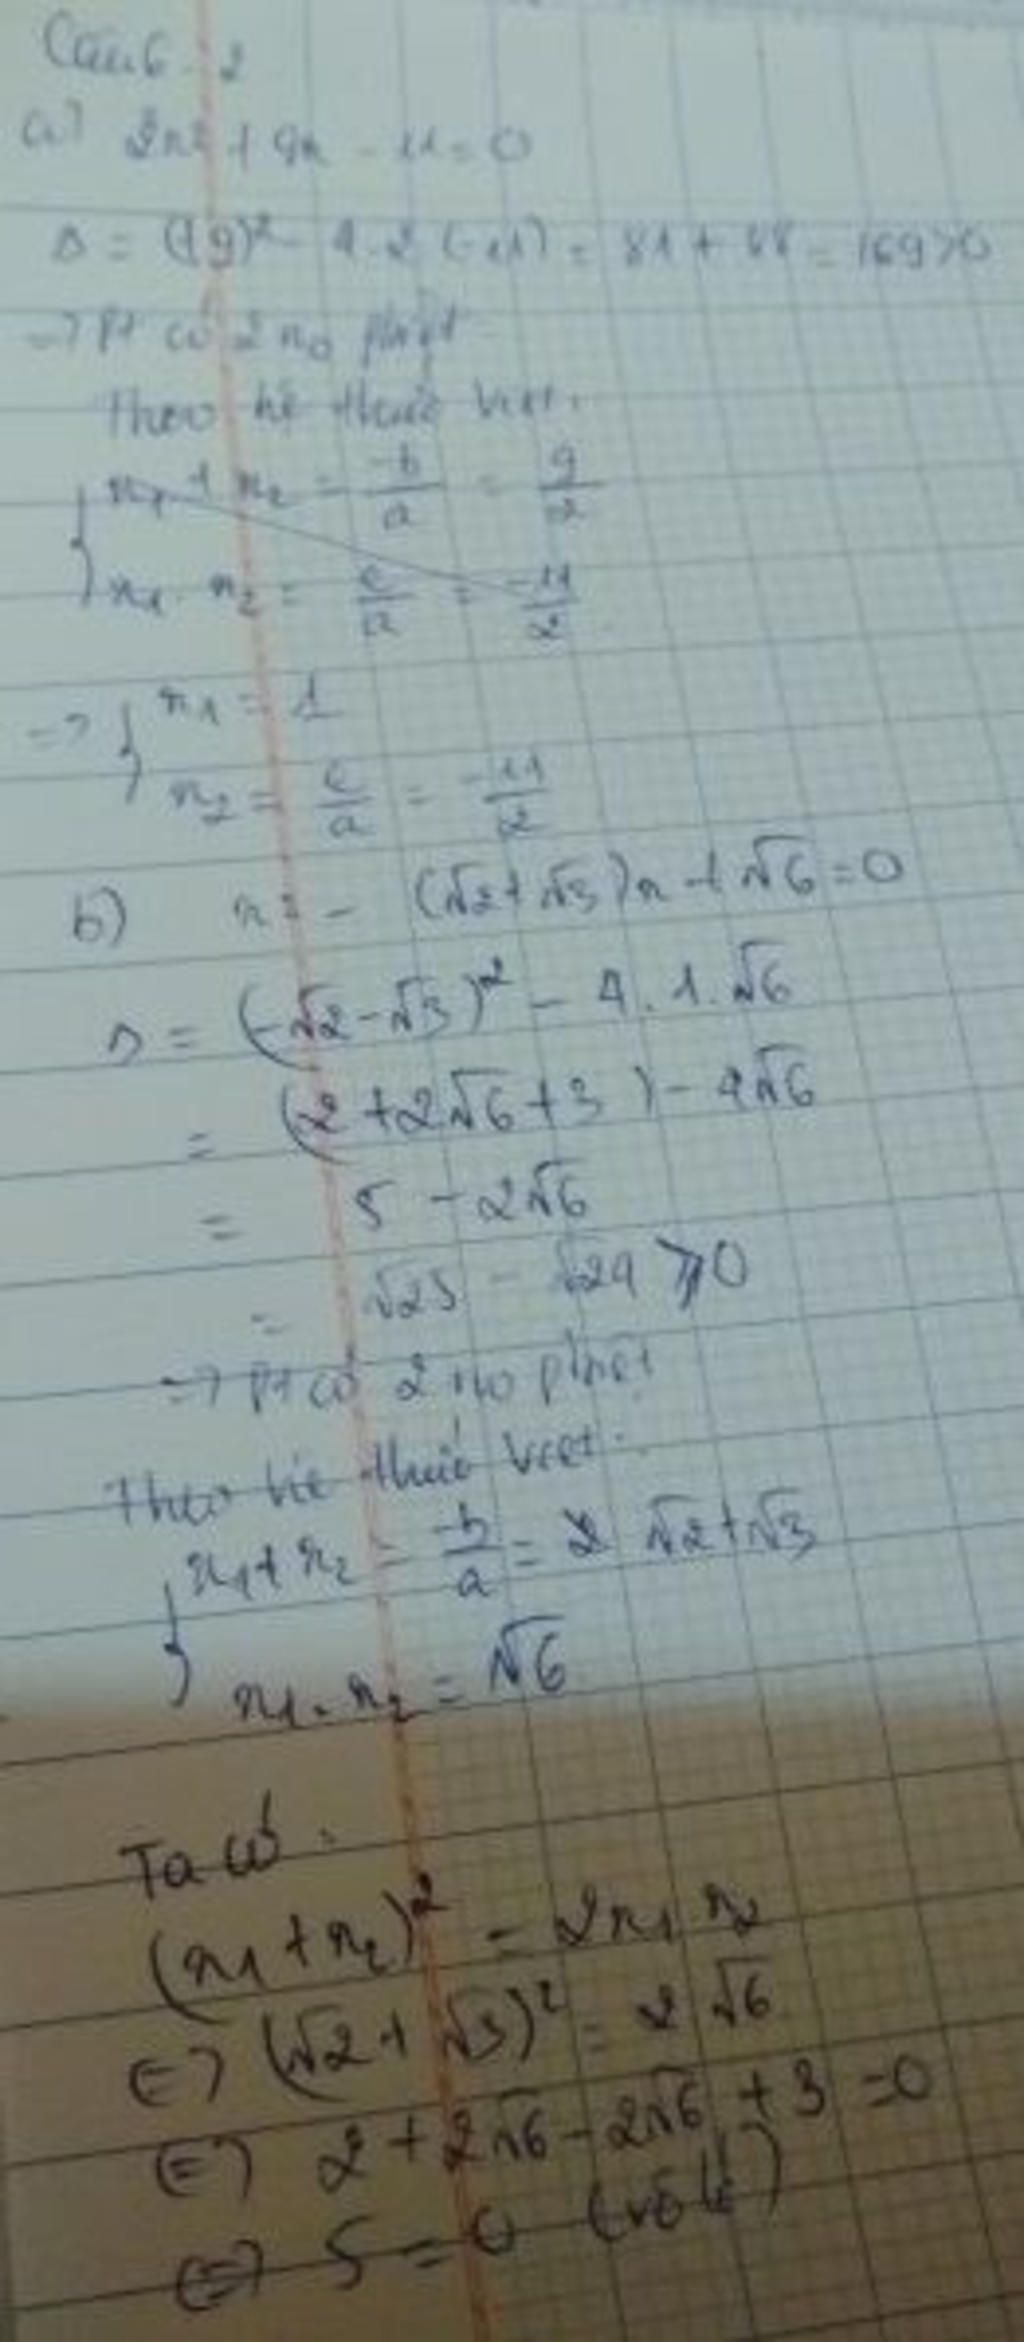 Câu 6 2
a) 2x² + 9x - 11 = 0
Δ = (+9)² - 4.2(-11) = 81 + 88 = 169 > 0
=> Pt có 2 no phbiệt
Theo hệ thức Viet.
{ x₁ + x₂ = -b/a = 9/2
x₁ . x₂ = c/a = -11/2
=> { x₁ = 1
x₂ = c/a = -11/2
b) x² - (√2 + √3)x + √6 = 0
Δ = (-√2 - √3)² - 4.1.√6
= (2 + 2√6 + 3) - 4√6
= 5 - 2√6
= √25 - √24 > 0
=> Pt có 2 no phbiệt
Theo hệ thức Viet:
{ x₁ + x₂ = -b/a = √2 + √3
x₁ . x₂ = √6
Ta có:
(x₁ + x₂)² = 2x₁x₂
<=> (√2 + √3)² = 2√6
<=> 2 + 2√6 - 2√6 + 3 = 0
<=> 5 = 0 (vô lí)